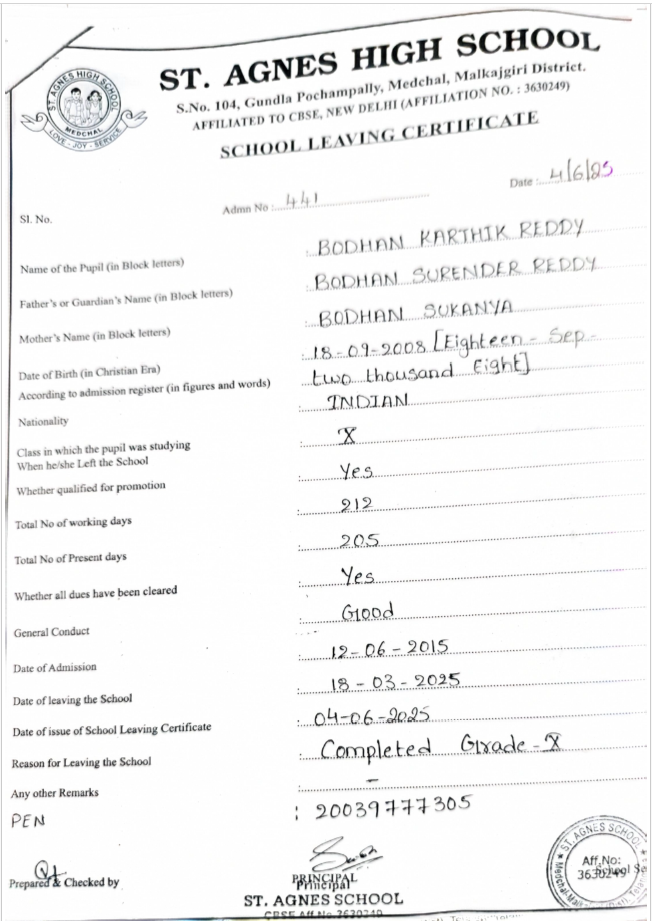 ST. AGNES HIGH SCHOOL
S.No. 104, Gundla Pochampally, Medchal, Malkajgiri District.
AFFILIATED TO CBSE, NEW DELHI (AFFILIATION NO. : 3630249)
SCHOOL LEAVING CERTIFICATE
ST. AGNES HIGH SCHOOL
MEDCHAL
LOVE - JOY - SERVICE
Sl. No.
Admn No : 441
Date : 4/6/25
Name of the Pupil (in Block letters) : BODHAN KARTHIK REDDY
Father's or Guardian's Name (in Block letters) : BODHAN SURENDER REDDY
Mother's Name (in Block letters) : BODHAN SUKANYA
Date of Birth (in Christian Era) : 18-09-2008 [Eighteen - Sep -
According to admission register (in figures and words) two thousand Eight]
Nationality : INDIAN
Class in which the pupil was studying
When he/she Left the School : X
Whether qualified for promotion : Yes
Total No of working days : 212
Total No of Present days : 205
Whether all dues have been cleared : Yes
General Conduct : Good
Date of Admission : 12-06-2015
Date of leaving the School : 18-03-2025
Date of issue of School Leaving Certificate : 04-06-2025
Reason for Leaving the School : Completed Grade-X
Any other Remarks : -
PEN : 20039777305
Prepared & Checked by
PRINCIPAL
Principal
ST. AGNES SCHOOL
CBSE Aff.No.3630249
ST. AGNES SCHOOL
Aff.No:
3630249